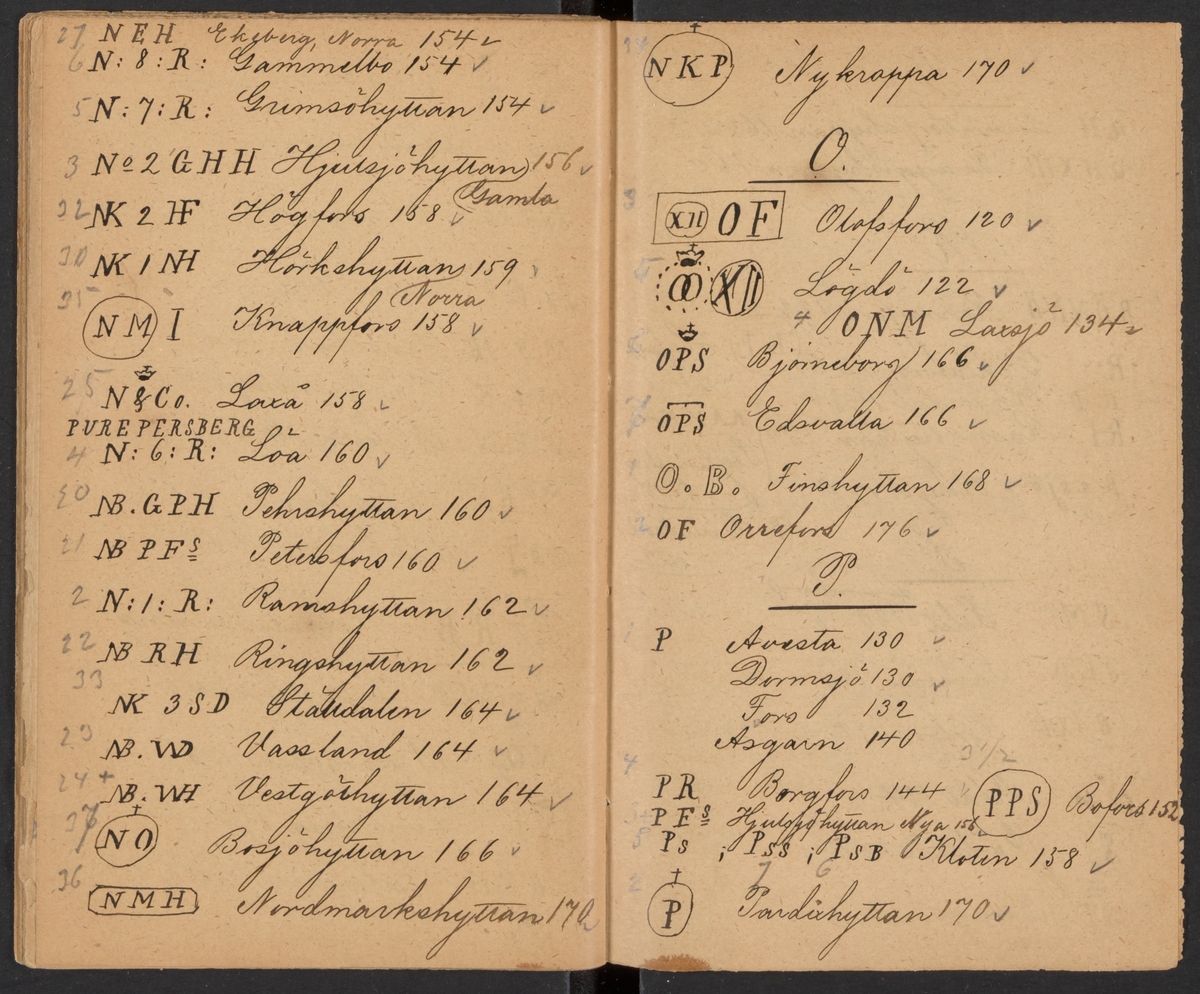 27 NEH Ekeberg, Norra 154 ✓
6 N: 8: R: Gammelbo 154 ✓
5 N: 7: R: Grimsöhyttan 154 ✓
3 No 2 GHH Hjulsjöhyttan 156 ✓
Gamla
32 NK 2 HF Högfors 158 ✓
30 NK 1 NH Hörkshyttan 159
Norra
35 NM I Knappfors 158 ✓
25 N & Co. Laxå 158 ✓
PURE PERSBERG
4 N: 6: R: Löa 160 ✓
20 NB. GPH Pehrshyttan 160 ✓
21 NB PFs Petersfors 160 ✓
2 N: 1: R: Ramshyttan 162 ✓
22 NB RH Ringshyttan 162 ✓
33 NK 3 SD Ställdalen 164 ✓
23 NB. WD Vassland 164 ✓
24 + NB. WH Vestgöthyttan 164 ✓
37 NO Bosjöhyttan 166 ✓
36 NMH Nordmarkshyttan 170
34 NKP Nykroppa 170 ✓
O.
3 XII OF Olofsfors 120 ✓
5 OO XII Lögdö 122 ✓
4 ONM Laxsjö 134
OPS Björneborg 166 ✓
OPS Edsvalla 166 ✓
1 O. B. Finshyttan 168 ✓
2 OF Orrefors 176 ✓
P.
1 P Avesta 130 ✓
Dormsjö 130 ✓
Fors 132
Åsgarn 140
3 1/2
4 PR Borgfors 144 ✓ PPS Bofors 152
PFs Hjulsjöhyttan Nya 156
5 Ps ; PSS ; PSB Kloten 158 ✓
7 6
2 P Pardixhyttan 170 ✓